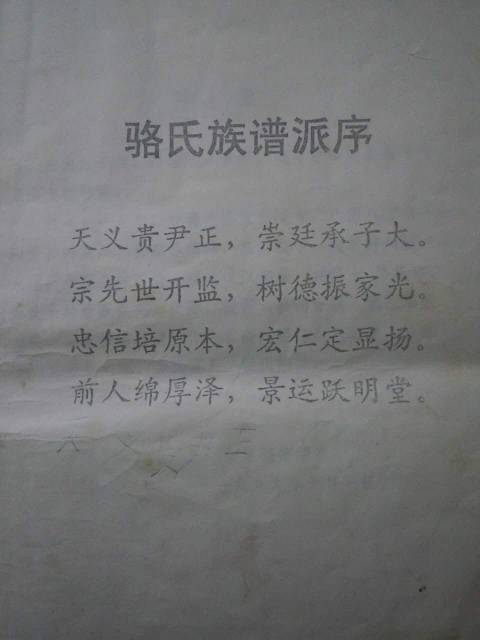 骆氏族谱派序
天义贵尹正，崇廷承子大。
宗先世开监，树德振家光。
忠信培原本，宏仁定显扬。
前人绵厚泽，景运跃明堂。